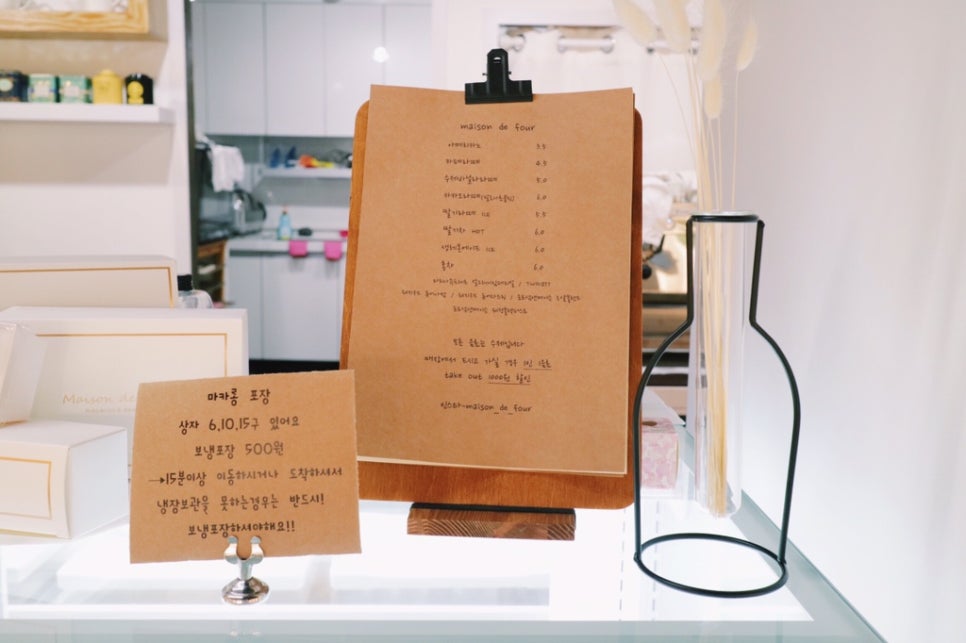 maison de four
아메리카노 3.5
카페라떼 4.5
수제바닐라라떼 5.0
6.0
딸기라떼 ICE 5.5
딸기차 HOT 6.0
생레몬에이드 ICE 6.0
홍차 6.0
/ TWG티
모든 음료는 수제입니다
매장에서 드시고 가실 경우 1인 1음료
take out 1000원 할인
인스타-maison_de_four
Maison de
마카롱 포장
상자 6,10,15구 있어요
보냉포장 500원
→15분이상 이동하시거나 도착하셔서
냉장보관을 못하는경우는 반드시!
보냉포장하셔야해요!!